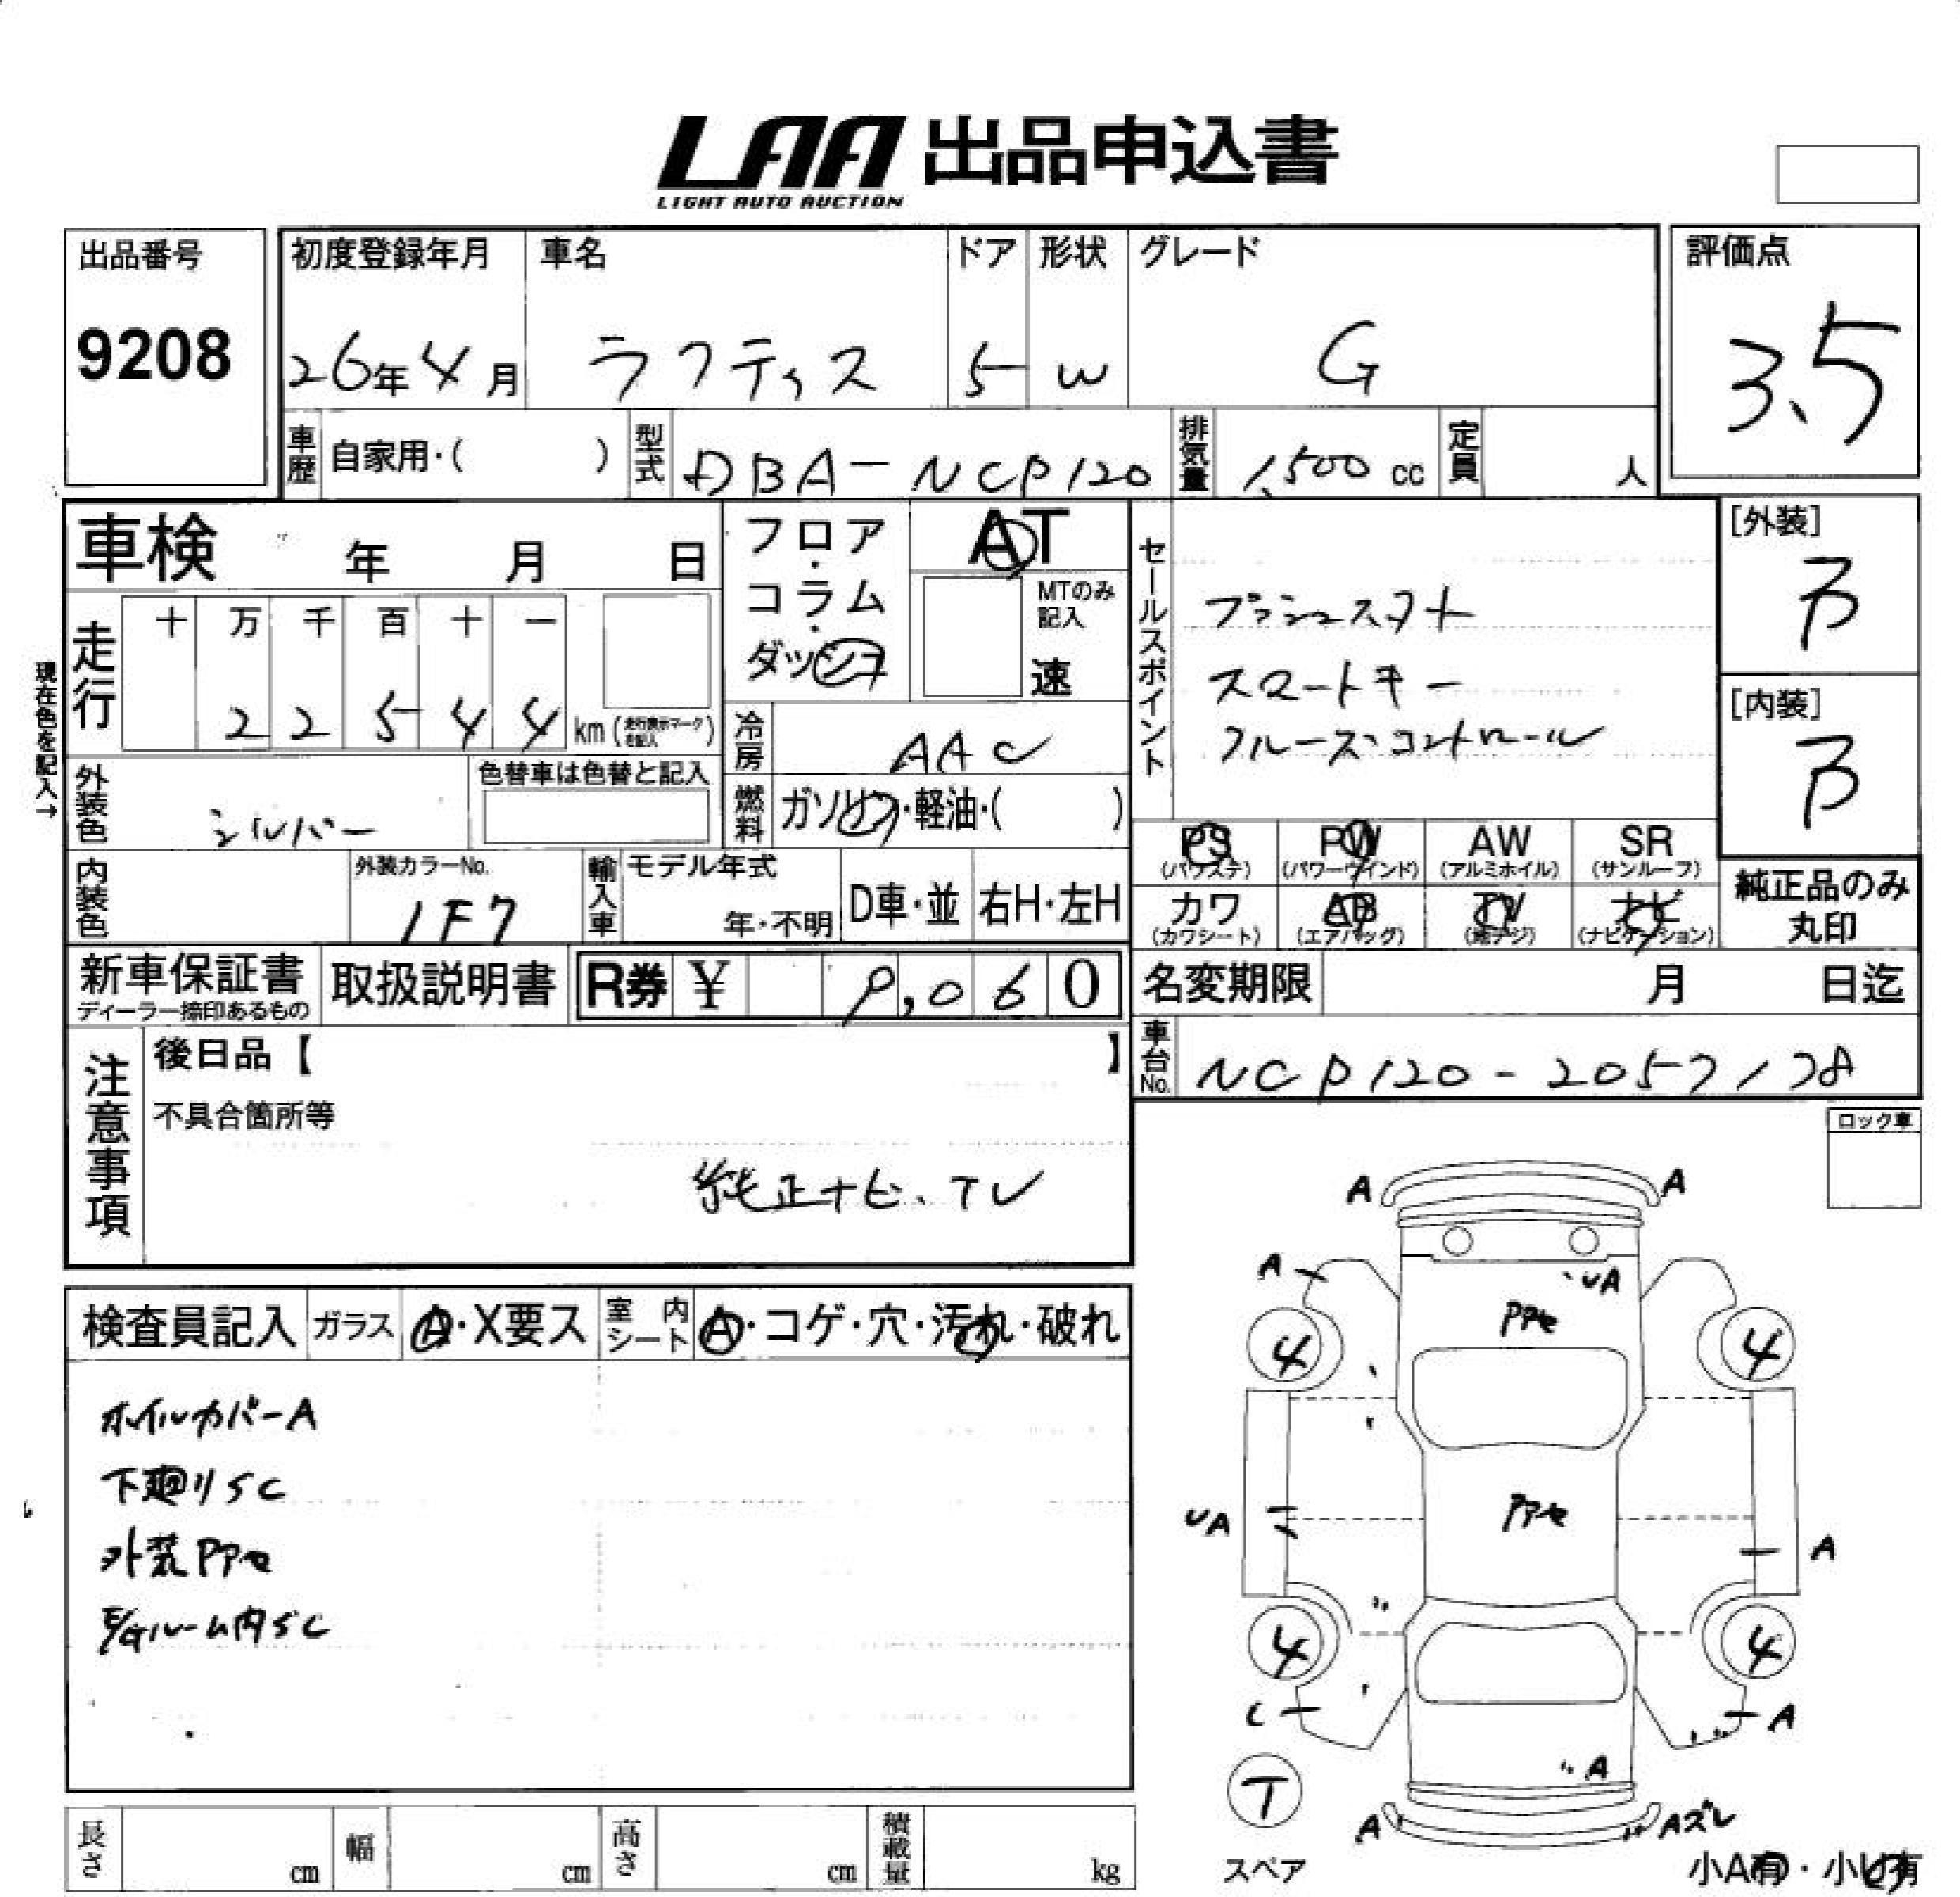 LAA 出品申込書
LIGHT AUTO AUCTION
出品番号
9208
初度登録年月 車名 ドア 形状 グレード
26年4月 ラクティス 5 W G
評価点
3.5
車歴 自家用・( ) 型式 DBA-NCP120 排気量 1,500 cc 定員 人
車検 年 月 日
フロア・コラム・ダッシュ
AT
MTのみ記入
速
セールスポイント
プッシュスタート
スマートキー
クルーズコントロール
[外装]
B
[内装]
B
現在色を記入→
走行 十 万 千 百 十 一
2 2 5 4 4 km (走行表示マークを記入)
冷房 AAC
外装色 シルバー
色替車は色替と記入
燃料 ガソリン・軽油・( )
内装色
外装カラーNo.
1F7
輸入車 モデル年式
年・不明 D車・並 右H・左H
PS (パワステ) PW (パワーウインド) AW (アルミホイル) SR (サンルーフ)
カワ (カワシート) AB (エアバッグ) TV (地デジ) ナビ (ナビゲーション)
純正品のみ
丸印
新車保証書
ディーラー捺印あるもの
取扱説明書 R券 ¥ 9,060
名変期限 月 日迄
車台No. NCP120-2057138
注意事項
後日品【 】
不具合箇所等
純正ナビ.TV
ロック車
検査員記入 ガラス A・X要ス 室内シート A・コゲ・穴・汚れ・破れ
ホイルカバーA
下廻りSC
外装PPセ
E/Gルーム内SC
A A
A UA
PPセ
4 4
PPセ
UA A
4 4
L A
A
T
スペア
A Aズレ
小A有・小U有
長さ cm 幅 cm 高さ cm 積載量 kg